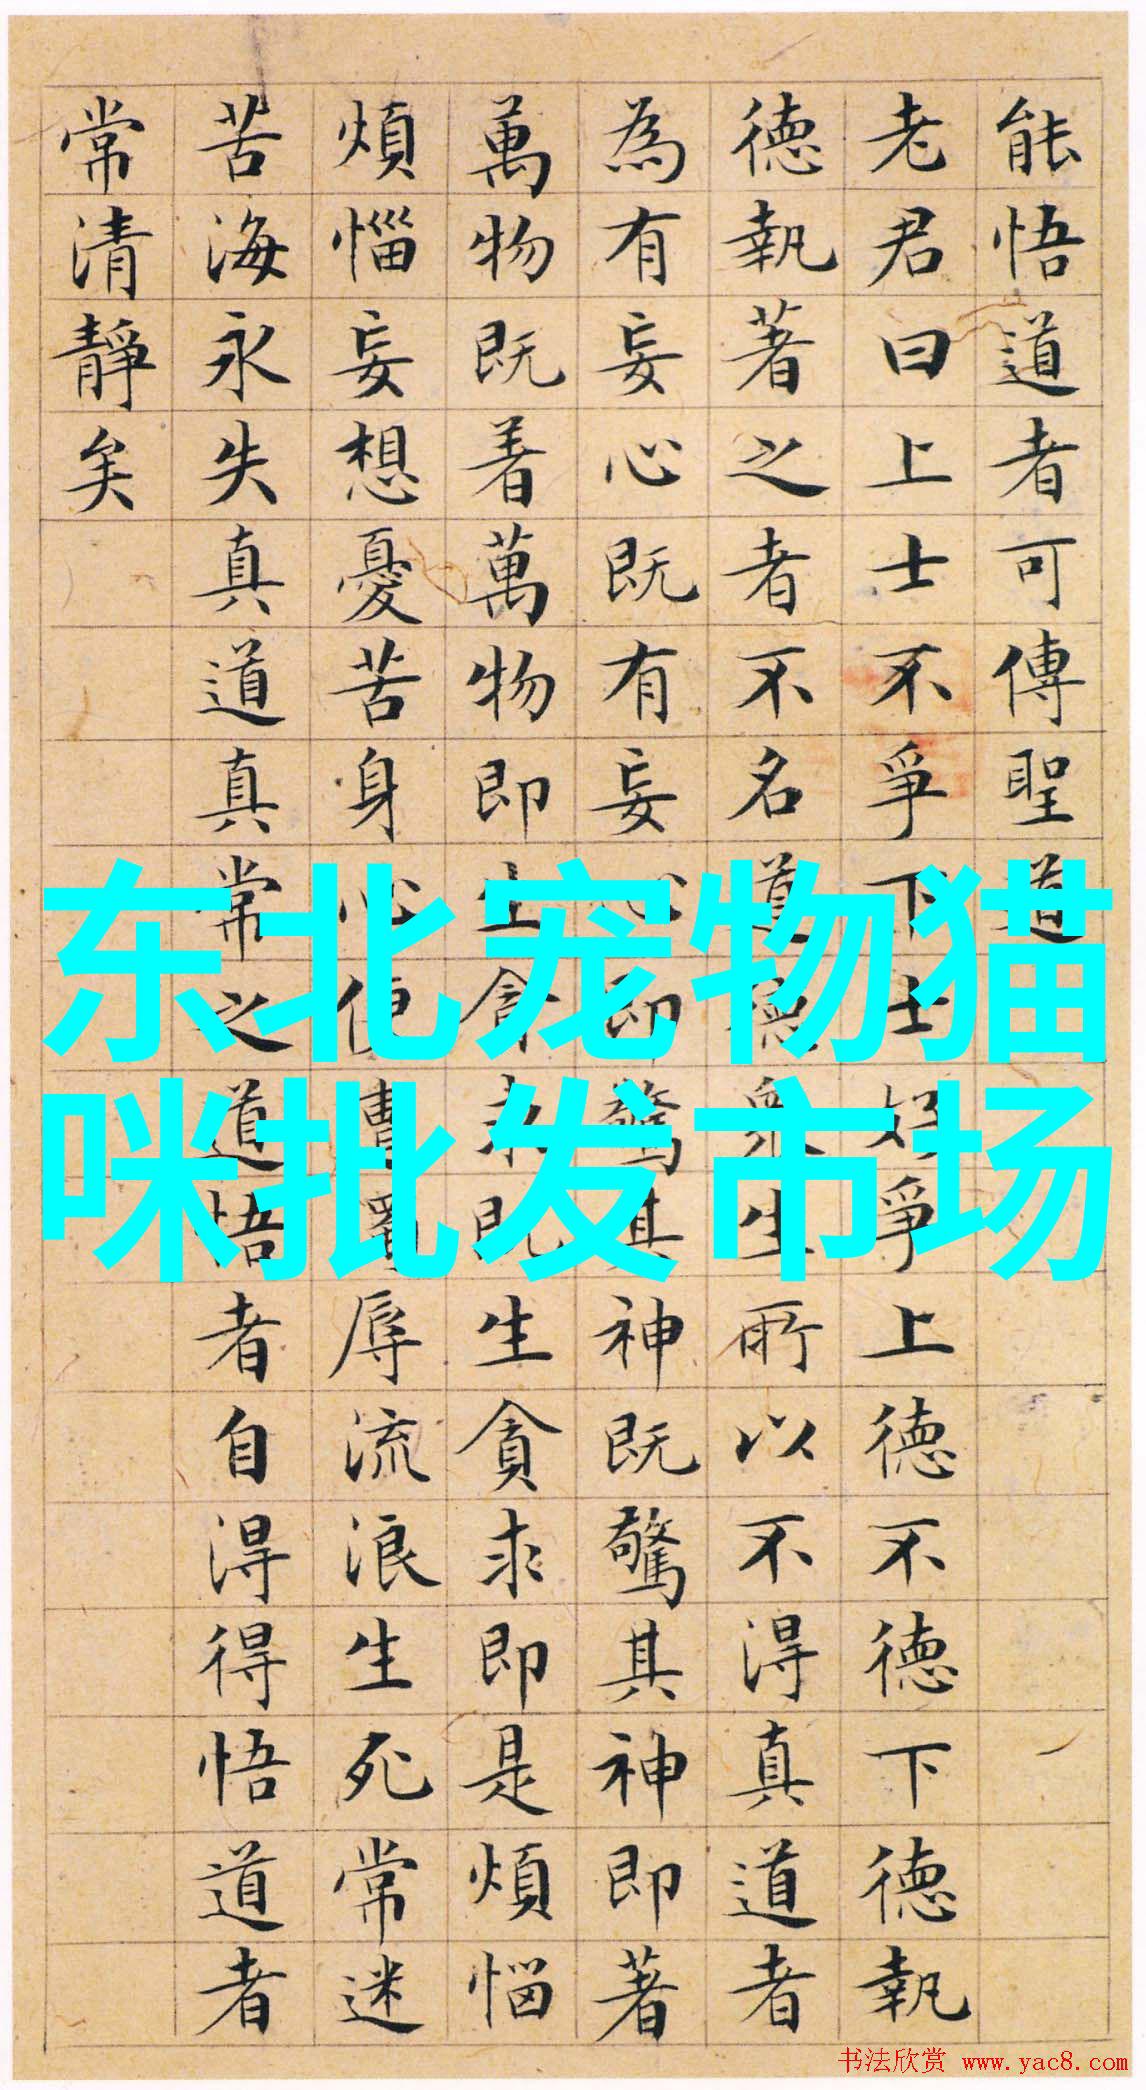 能悟道者可傳聖道
老君曰上士不爭下士好爭上德不德下德執
德執著之者不名道德眾生所以不得真道者
為有妄心既有妄心即驚其神既驚其神即著
萬物既着萬物即生貪求既生貪求即是煩惱
煩惱妄想憂苦身心便遭濁辱流浪生死常迷
苦海永失真道真常之道悟者自得得悟道者
常清靜矣
东北宠物猫
咪批发市场
书法欣赏 www.yac8.com